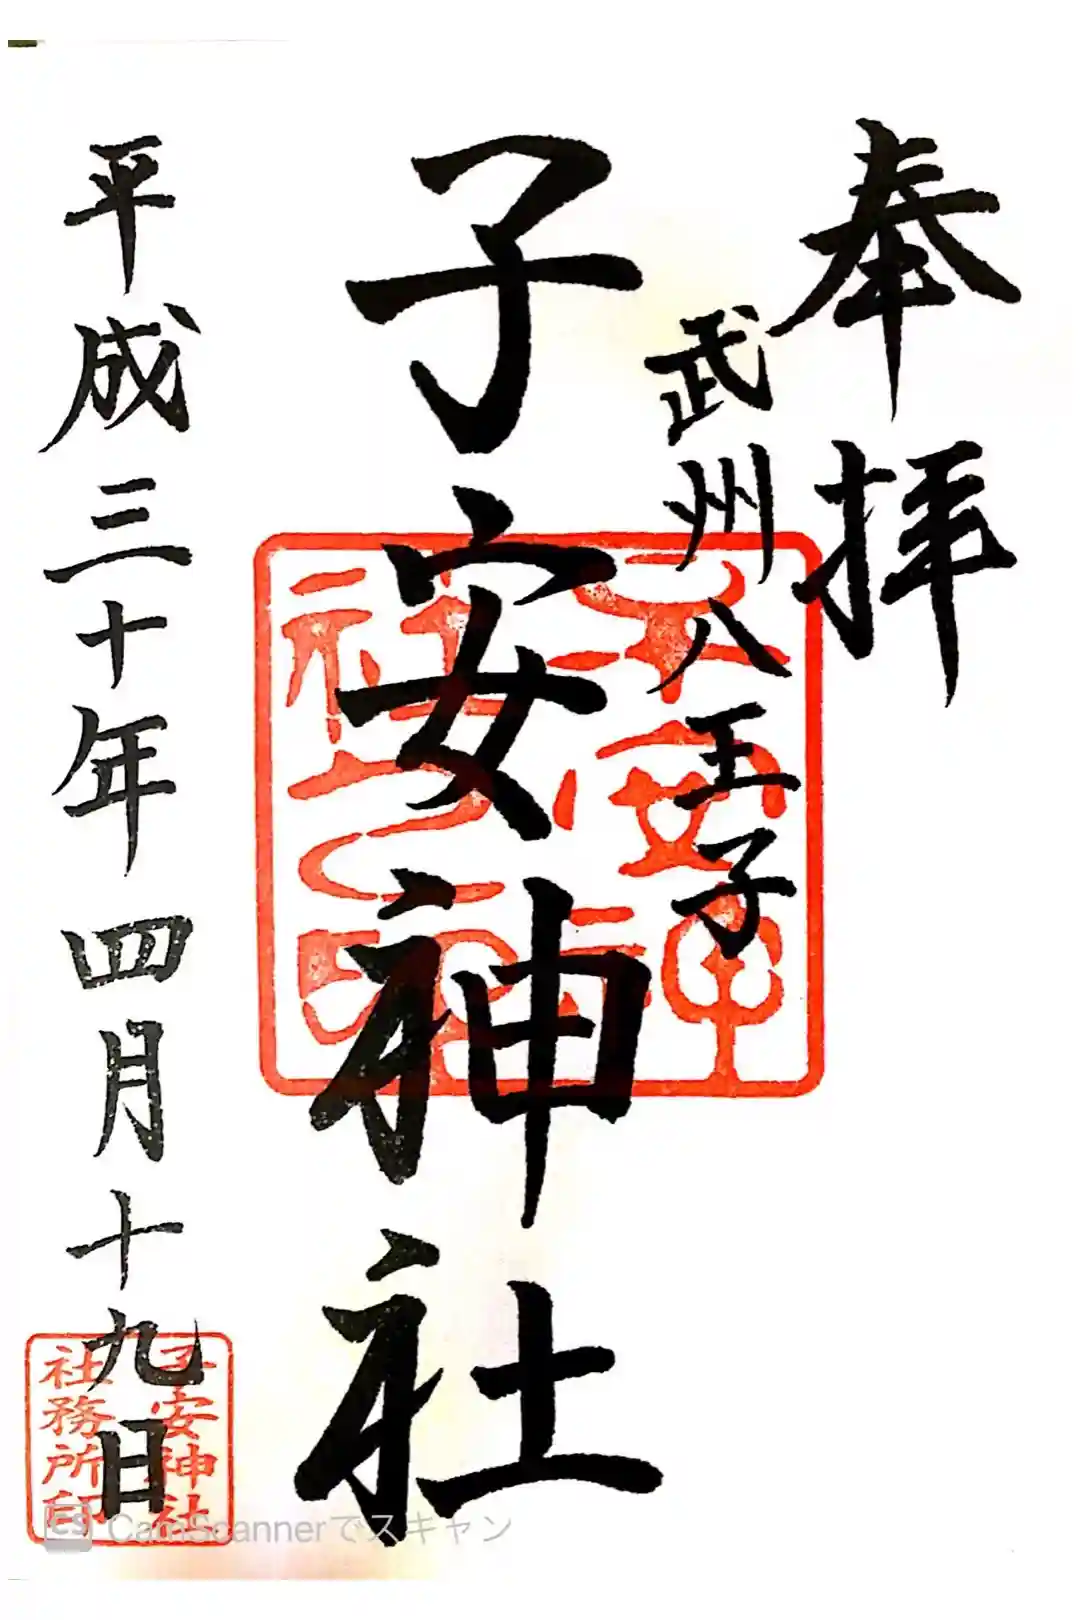 奉拝
武州八王子
子安神社
平成三十年四月十九日
子安神
社之印
子安神社
社務所印
CS CamScannerでスキャン